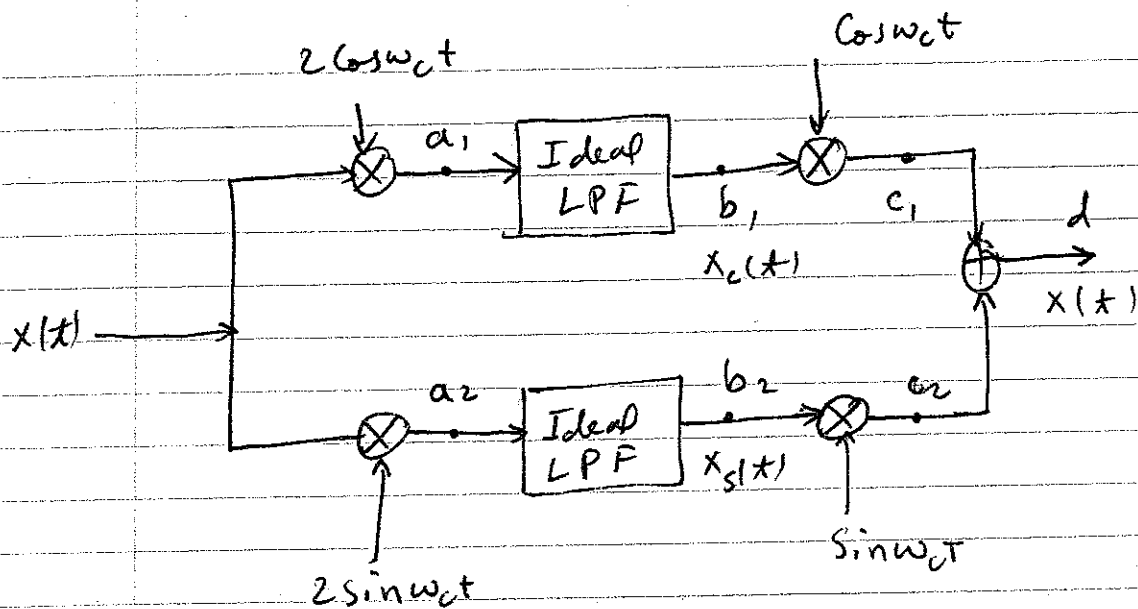 2 Cosωct
Cosωct
a1
Ideal
LPF
b1
c1
d
xc(t)
x(t)
x(t)
a2
Ideal
LPF
b2
c2
xs(t)
2 sinωct
sinωct